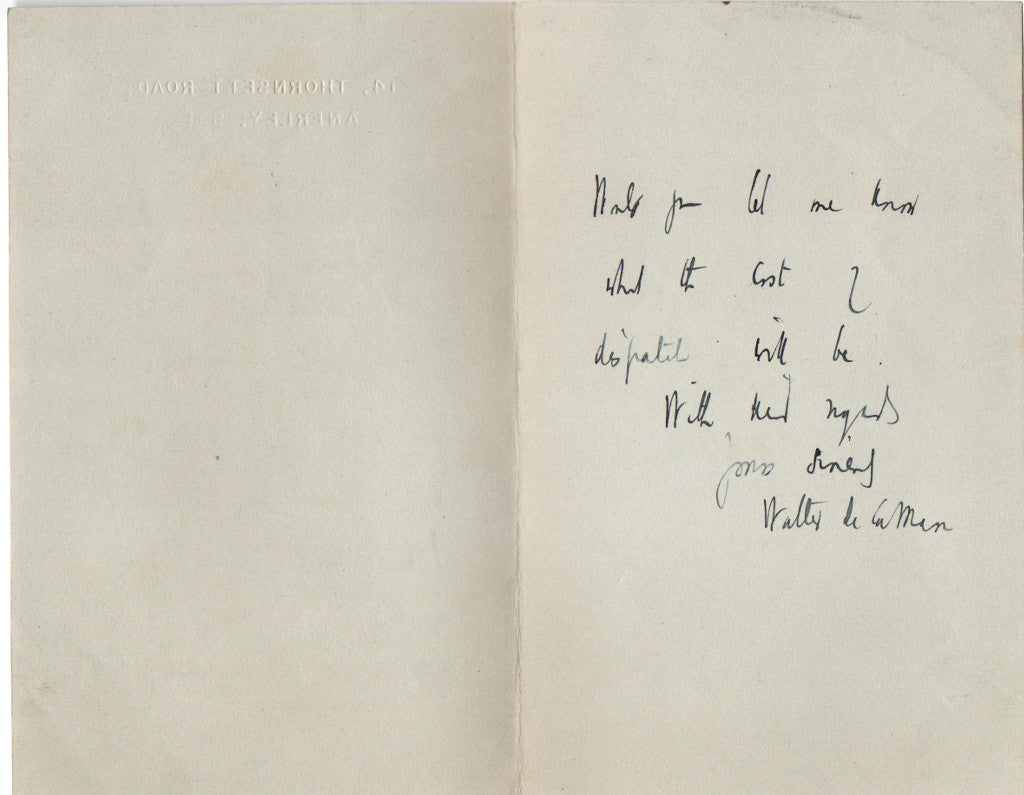 14, THORNSETT ROAD,
ANERLEY, S.E.
Would you let me know
what the cost of
dispatch will be.
With kind regards
yours sincerely
Walter de la Mare